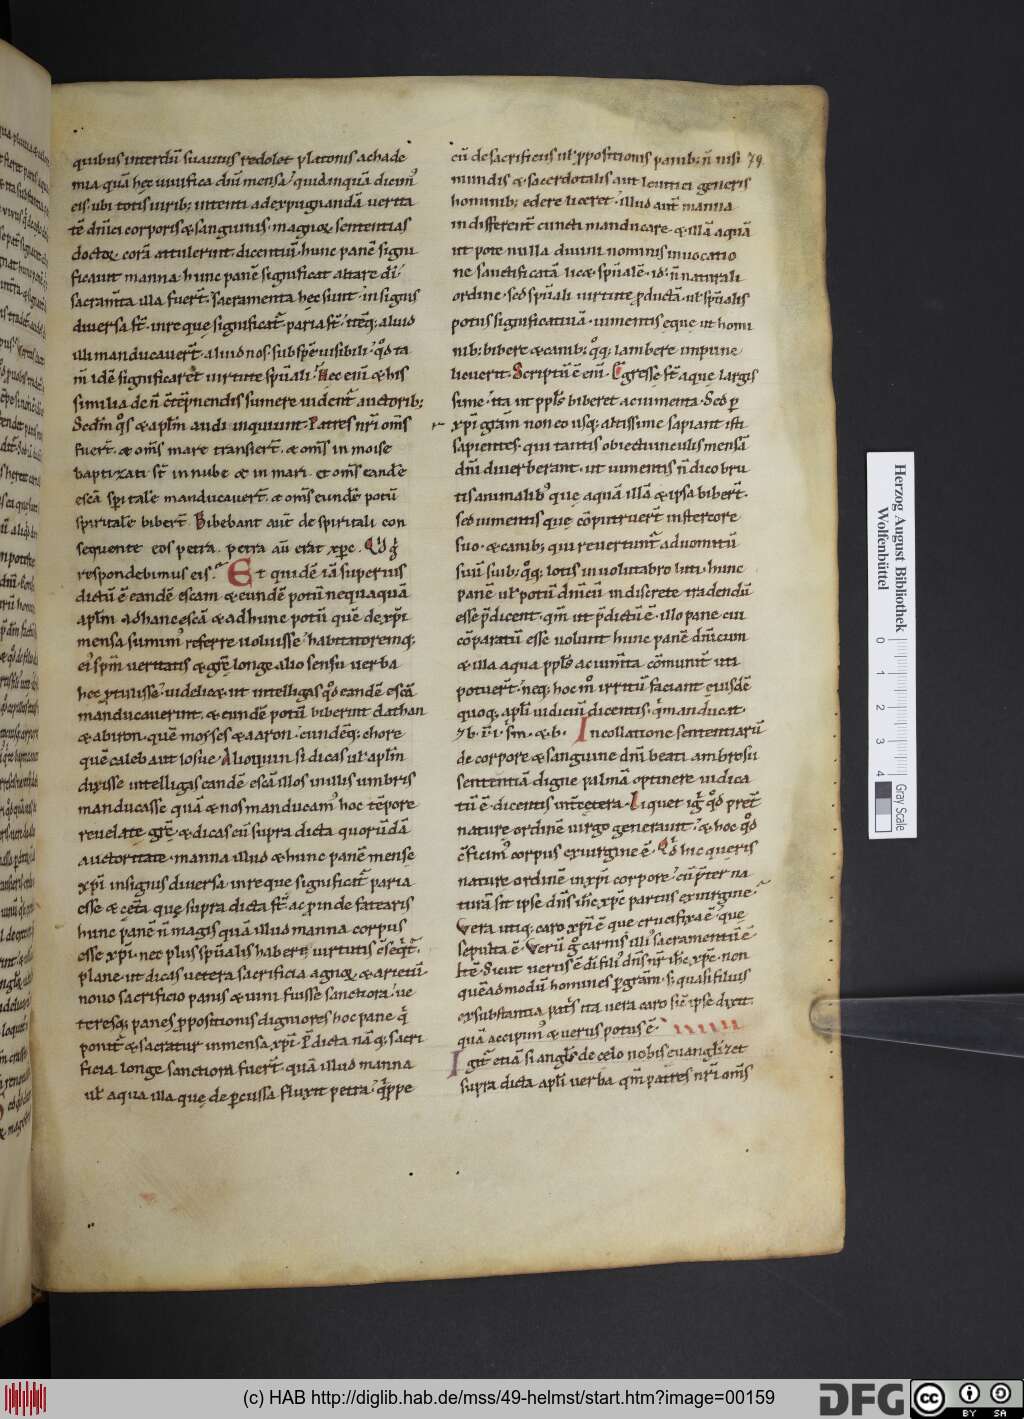 quibus interdū suauius redolet platonis achade
mia quā hęc uiuifica dn̄i mensa? quid inquā dicem᷒
eis ubi totis uirib; intenti ad expugnandā uerita
tē dn̄ici corporis & sanguinis. magnoꝝ sententias
doctoꝝ corā attulerint. dicentiū. hunc panē signi
ficauit manna. hunc panē significat altare dī.
sacram̄ta illa fuer̄t. sacramenta hęc sunt. in signis
diuersa st̄. in re que significat᷑ paria st̄. itēq; aliud
illi manducauer̄t. aliud nos. sub spē uisibili. qd̄ ta
m̄ idē significaret uirtute spūali. Nec enī & his
similia de n̄ ctēpnendis sumere uident᷑ auctorib;
fuer̄t. & om̄s mare transier̄t. & om̄s in moise
baptizati st̄ in nube & in mari. et om̄s eandē
escā spiritalē manducauer̄t. & om̄s eundē potū
spiritalē biber̄t. Bibebant aut̄ de spiritali con
sequente eos petra. petra aū erat xp̄c.
respondebimus eis. Et quidē iā superius
dictū ē eandē escam & eundē potū nequaquā
apl̄m ad hanc escā & ad hunc potū quē de xp̄i
mensa sumim᷒ referre uoluisse. habitatoremq;
ei᷒ sp̄m ueritatis & grę̄ longe alio sensu uerba
hęc ꝓtulisse. uidelic& ut intelligas qd̄ eandē escā
manducauerint. & eundē potū biberint dathan
& abiron. quē moyses & aaron. eundēq; chore
quē caleb aut iosue. Alioquin si dicas ul̄ apl̄m
dixisse intelligas eandē escā illos in illis umbris
manducasse quā & nos manducam᷒ hoc tēpore
reuelate grę̄. & dicas cū supra dicta quorūdā
auctoritate. manna illud & hunc panē mensę
xp̄i in signis diuersa. in re que significat᷑ paria
esse & cet̄a quę supra dicta st̄. ac ꝓinde fatearis
hunc panē n̄ magis quā illud manna corpus
esse xp̄i. nec plus spūalis habere uirtutis
plane ut dicas uetera sacrificia agnoꝝ & arietū
nouo sacrificio panis & uini fuisse sanctiora. ue
teresq; panes ꝓpositionis digniores hoc pane q̄
ponit᷑ & sacratur in mensa xp̄i. P̄dicta nāq; sacri
ficia longe sanctiora fuer̄t quā illud manna
ul̄ aqua illa quę de ꝑcussa fluxit petra. quippe
cū de sacrificiis ul̄ ꝓpositionis panib; n̄ nisi 79.
mundis & sacerdotalis aut leuitici generis
hominib; edere liceret. illud aut̄ manna
indifferent̄ cuncti manducare. & illā aquā
ut pote nulla diuini nominis inuocatio
ne sanctificatā lic& spūalē. id ē n̄ naturali
ordine. sed spūali uirtute ꝓductā. ul̄ spūalis
potus significatiuā. iumentis eque ut homi
nib; bibere & canib; qq; lambere impune
licuerit. Scriptū ē eni. Egressę st̄ aquę largis
simę. ita ut ppl̄s biberet ac iumenta. Sed ꝑ
xp̄i grām non eo usq; altissime sapiant isti
sapientes. qui tantis obiectiunculis mensā
dn̄i diuerberant. ut iumentis n̄ dico bru
tis animalib᷒ que aquā illā & ipsa biber̄t.
sed iumentis que cōputruer̄t in stercore
suo. & canib; qui reuertunt᷑ ad uomitū
suū suib; qq; lotis in uolutabro luti. hunc
panē ul̄ potū dn̄icū indiscrete tradendū
esse p̄dicent. qm̄ ut p̄dictū ē. illo pane cui
cōparatū esse uolunt hunc panē dn̄icum
& illa aqua ppl̄s ac ium̄ta cōmunit̄ uti
potuer̄t. neq; hoc m̊ irritū faciant eiusdē
quoq; apl̄i iudiciū dicentis. q̄ manducat.
In collatione sententiarū
de corpore & sanguine dn̄i beati ambrosii
sententiā digne palmā optinere iudica
tū ē. dicentis int̄ cetera. Liquet ig̅ qd̄ pret̄
naturę ordinē uirgo generauit. & hoc qd̄
cficim᷒ corpus ex uirgine ē. Qd̄ hic queris
naturę ordinē in xp̄i corpore. cū p̄ter na
turā sit ipse dn̄s ih̄c xp̄c partus ex uirgine.
Vera utiq; caro xp̄i ē que crucifixa ē. que
sepulta ē. Verū g̊ carnis illi᷒ sacramentū ē
Sicut uerus ē dī fili᷒ dn̄s nr̄ ih̄c xp̄c. non
quēadmodū homines ꝑ grām. s; quasi filius
ex substantia patris ita uera caro sic̄ ipse dixit.
quā accipim᷒ & uerus potus ē.
Igit᷑ etiā si angl̄s de celo nobis euangl̄izet
supra dicta apl̄i uerba qm̄ patres nr̄i om̄s
Herzog August Bibliothek
Wolfenbüttel
0 1 2 3 4
Gray Scale
(c) HAB http://diglib.hab.de/mss/49-helmst/start.htm?image=00159
DFG
cc BY SA